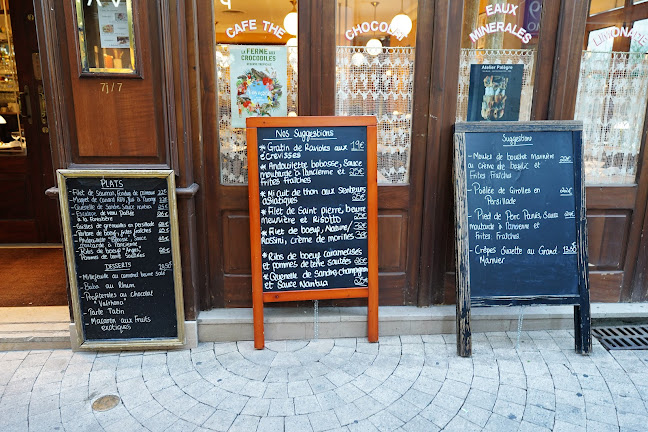 7j/7
CAFE THE
CHOCOLAT
EAUX
MINERALES
LIMONADE
LA FERME AUX
CROCODILES
PLATS
Filet de Saumon, fondue de poireaux
Magret de canard Rôti, Jus à l'orange
Quenelle de Sandre Sauce Nantua
Escalope de veau Poêlée
à la forestière
Cuisses de grenouilles en persillade
Entrecôte de boeuf, frites fraîches
Andouillette "Bobosse", Sauce
moutarde à l'ancienne
Ribs de boeuf "Angus",
Pommes de terre sautées
DESSERTS
Millefeuille au caramel beurre salé
Baba au Rhum
Profiteroles au chocolat
"Valrhona"
Tarte Tatin
Macaron aux Fruits
exotiques
Nos Suggestions
* Gratin de Ravioles aux 19€
écrevisses
* Andouillette bobosse, Sauce
moutarde à l'ancienne et
Frites fraîches
* Mi cuit de thon aux Senteurs
asiatiques
* Filet de Saint pierre, beurre
meunière et Risotto
* Filet de boeuf, Nature/
Rossini, crème de morilles
* Ribs de boeuf caramelisées
et pommes de terre sautées
* Quenelle de Sandre, champignons
et Sauce Nantua
Suggestions
- Moules de bouchot Marinière
ou crème de basilic et
Frites
- Poêlée de Girolles en
Persillade
- Pied de Porc Panés, Sauce
moutarde à l'ancienne et
Frites Fraîches
- Crêpes Suzette au Grand
Marnier